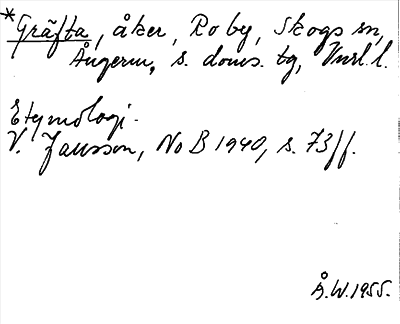 *Gräfta, åker, Ro by, Skogs sn,
Ångerm., s. doms. tg, Vnrl. l.
Etymologi.
V. Jansson, NoB 1940, s. 73 ff.
Å.W. 1955.